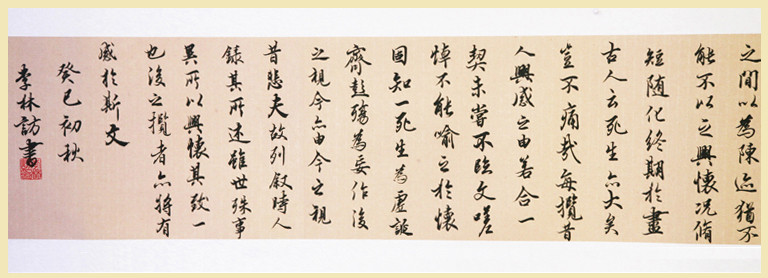 之間以為陳迹猶不
能不以之興懷况脩
短随化終期於盡
古人云死生亦大矣
豈不痛哉每攬昔
人興感之由若合一
契未嘗不臨文嗟
悼不能喻之於懷
固知一死生為虛誕
齊彭殤為妄作後
之視今亦由今之視
昔悲夫故列叙時人
錄其所述雖世殊事
異所以興懷其致一
也後之攬者亦將有
感於斯文
癸巳初秋
李林訪書